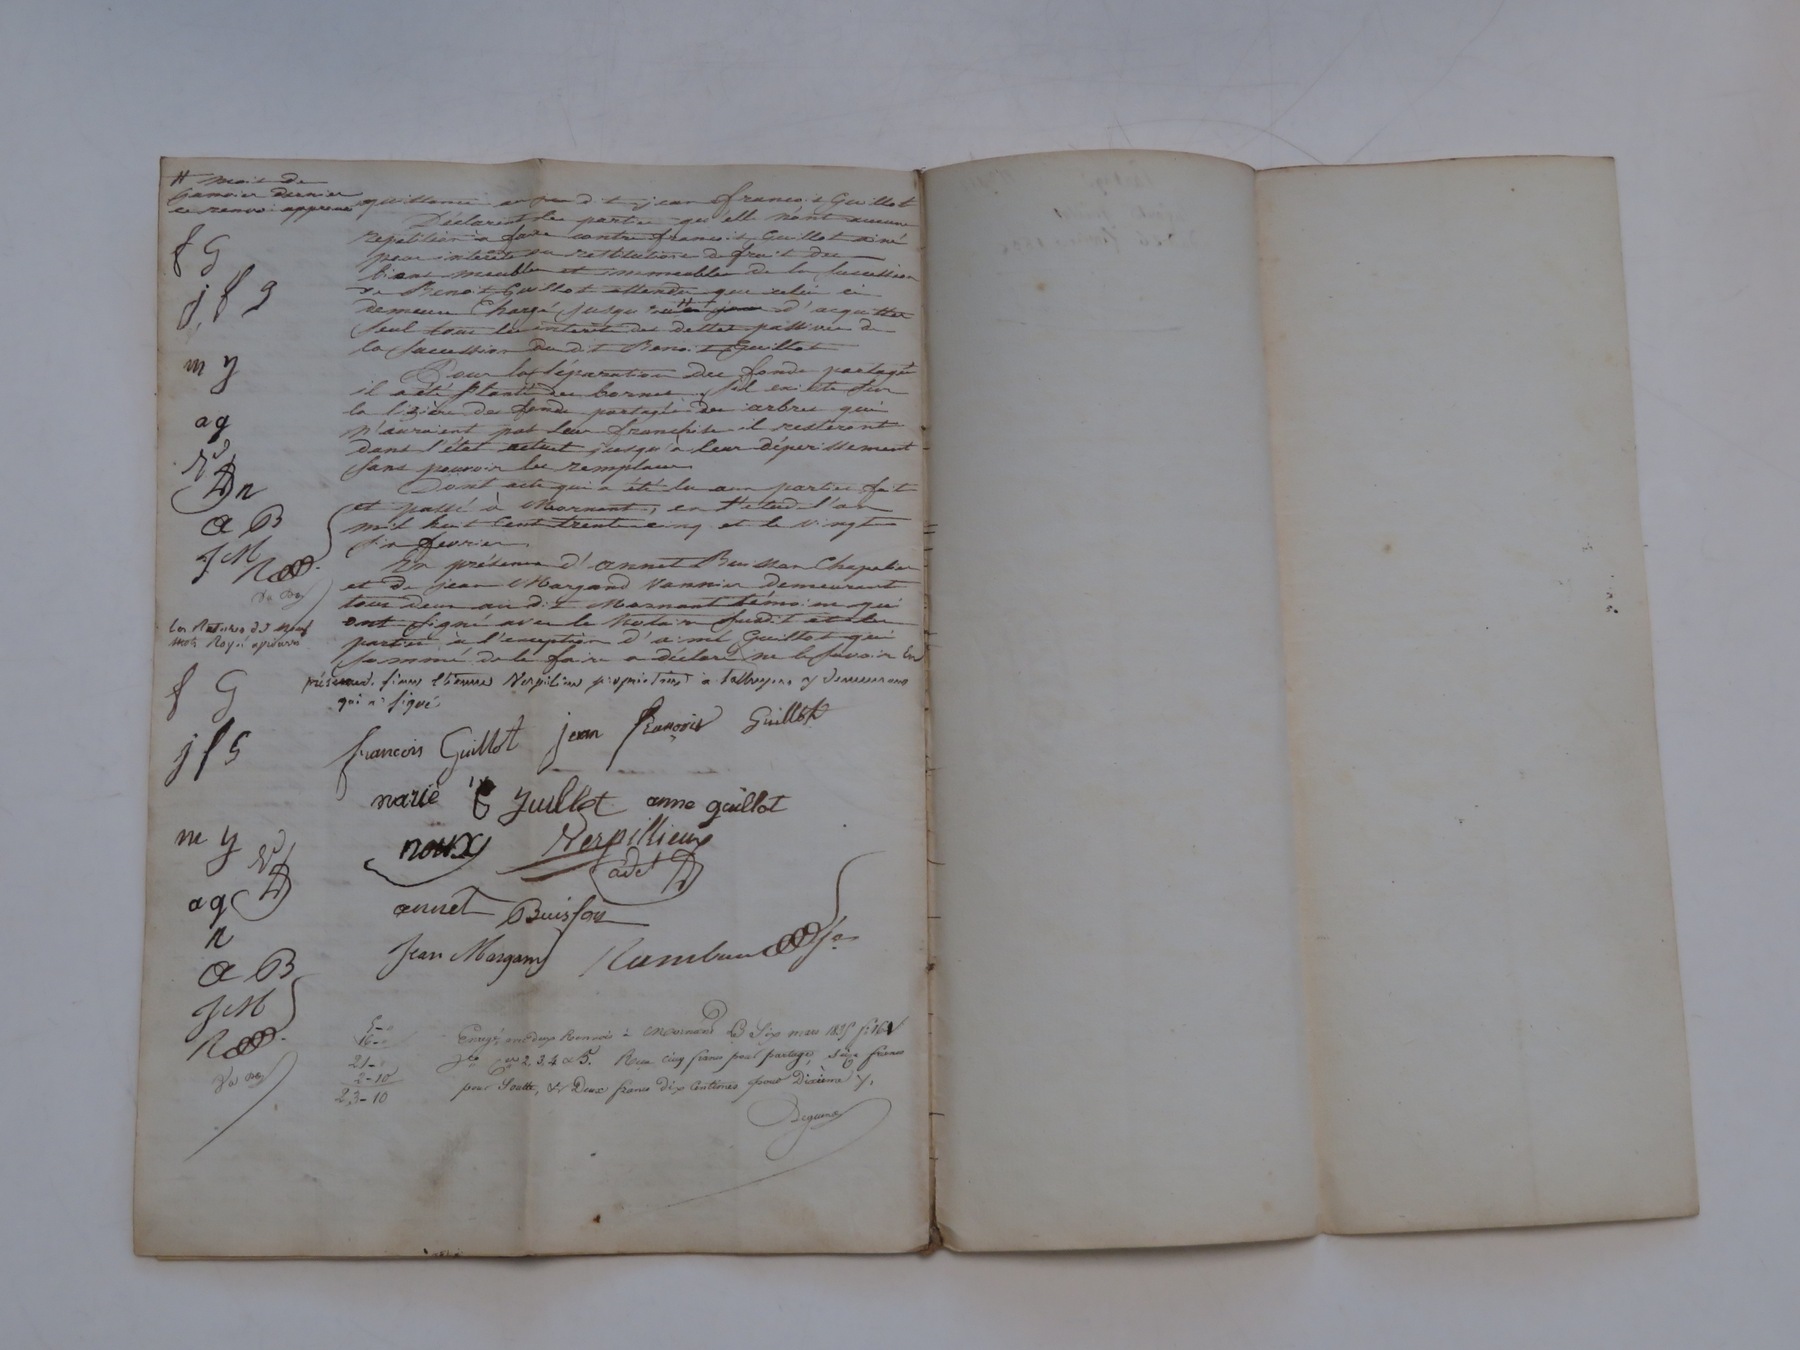 # mois de
Janvier dernier
ce renvoi approuvé
quittance au profit de jean françois Guillot
Déclarent les parties qu'elle n'ont aucune
repetition à faire contre françois Guillot ainé
pour interets ou restitution de fruit des
biens meubles et immeubles de la succession
de Benoit Guillot attendu que celui ci
demeure Chargé jusqu'au # d'acquitter
seul tous les interets des dettes passives de
la succession du dit Benoit Guillot
Pour la séparation des fonds partagés
il a été planté des bornes, s'il existe sur
la lisière des fonds partagés des arbres qui
n'auraient pas leur franchise il resteront
dans l'état actuel jusqu'à leur dépérissement
sans pouvoir les remplacer
Dont acte qui a été lu aux parties fait
et passé à Mornant, en l'étude l'an
mil huit Cent trente cinq et le vingt
six fevrier.
En présence d'annet Buisson Chapelier
et de jean Margand Vannier demeurant
tous deux au dit Mornant témoins qui
ont signé avec le Notaire susdit et les
parties à l'exception d'aimé Guillot qui
sommé de le faire a déclaré ne le savoir En
présence. sieur etienne Verpilieux propriétaire à taluyers y demeurant
qui a signé
f G
j f g
m g
ag
V
n
a B
JM
R
mots Rayé
f G
j f G
m g
V
ag
n
a B
JM
R
francois Guillot jean françois Guillot
marie guillot anne guillot
noux Verpillieux
annet Buisson
Jean Margand
5-"
16-"
21-"
2-10
23-10
Enregé, avec deux Renvois à Mornant le Six mars 1835 f° 164
V° Ces 2, 3, 4 & 5. Reçu cinq francs pour partage, seize francs
pour Soulte, & Deux francs dix Centimes pour Dixième